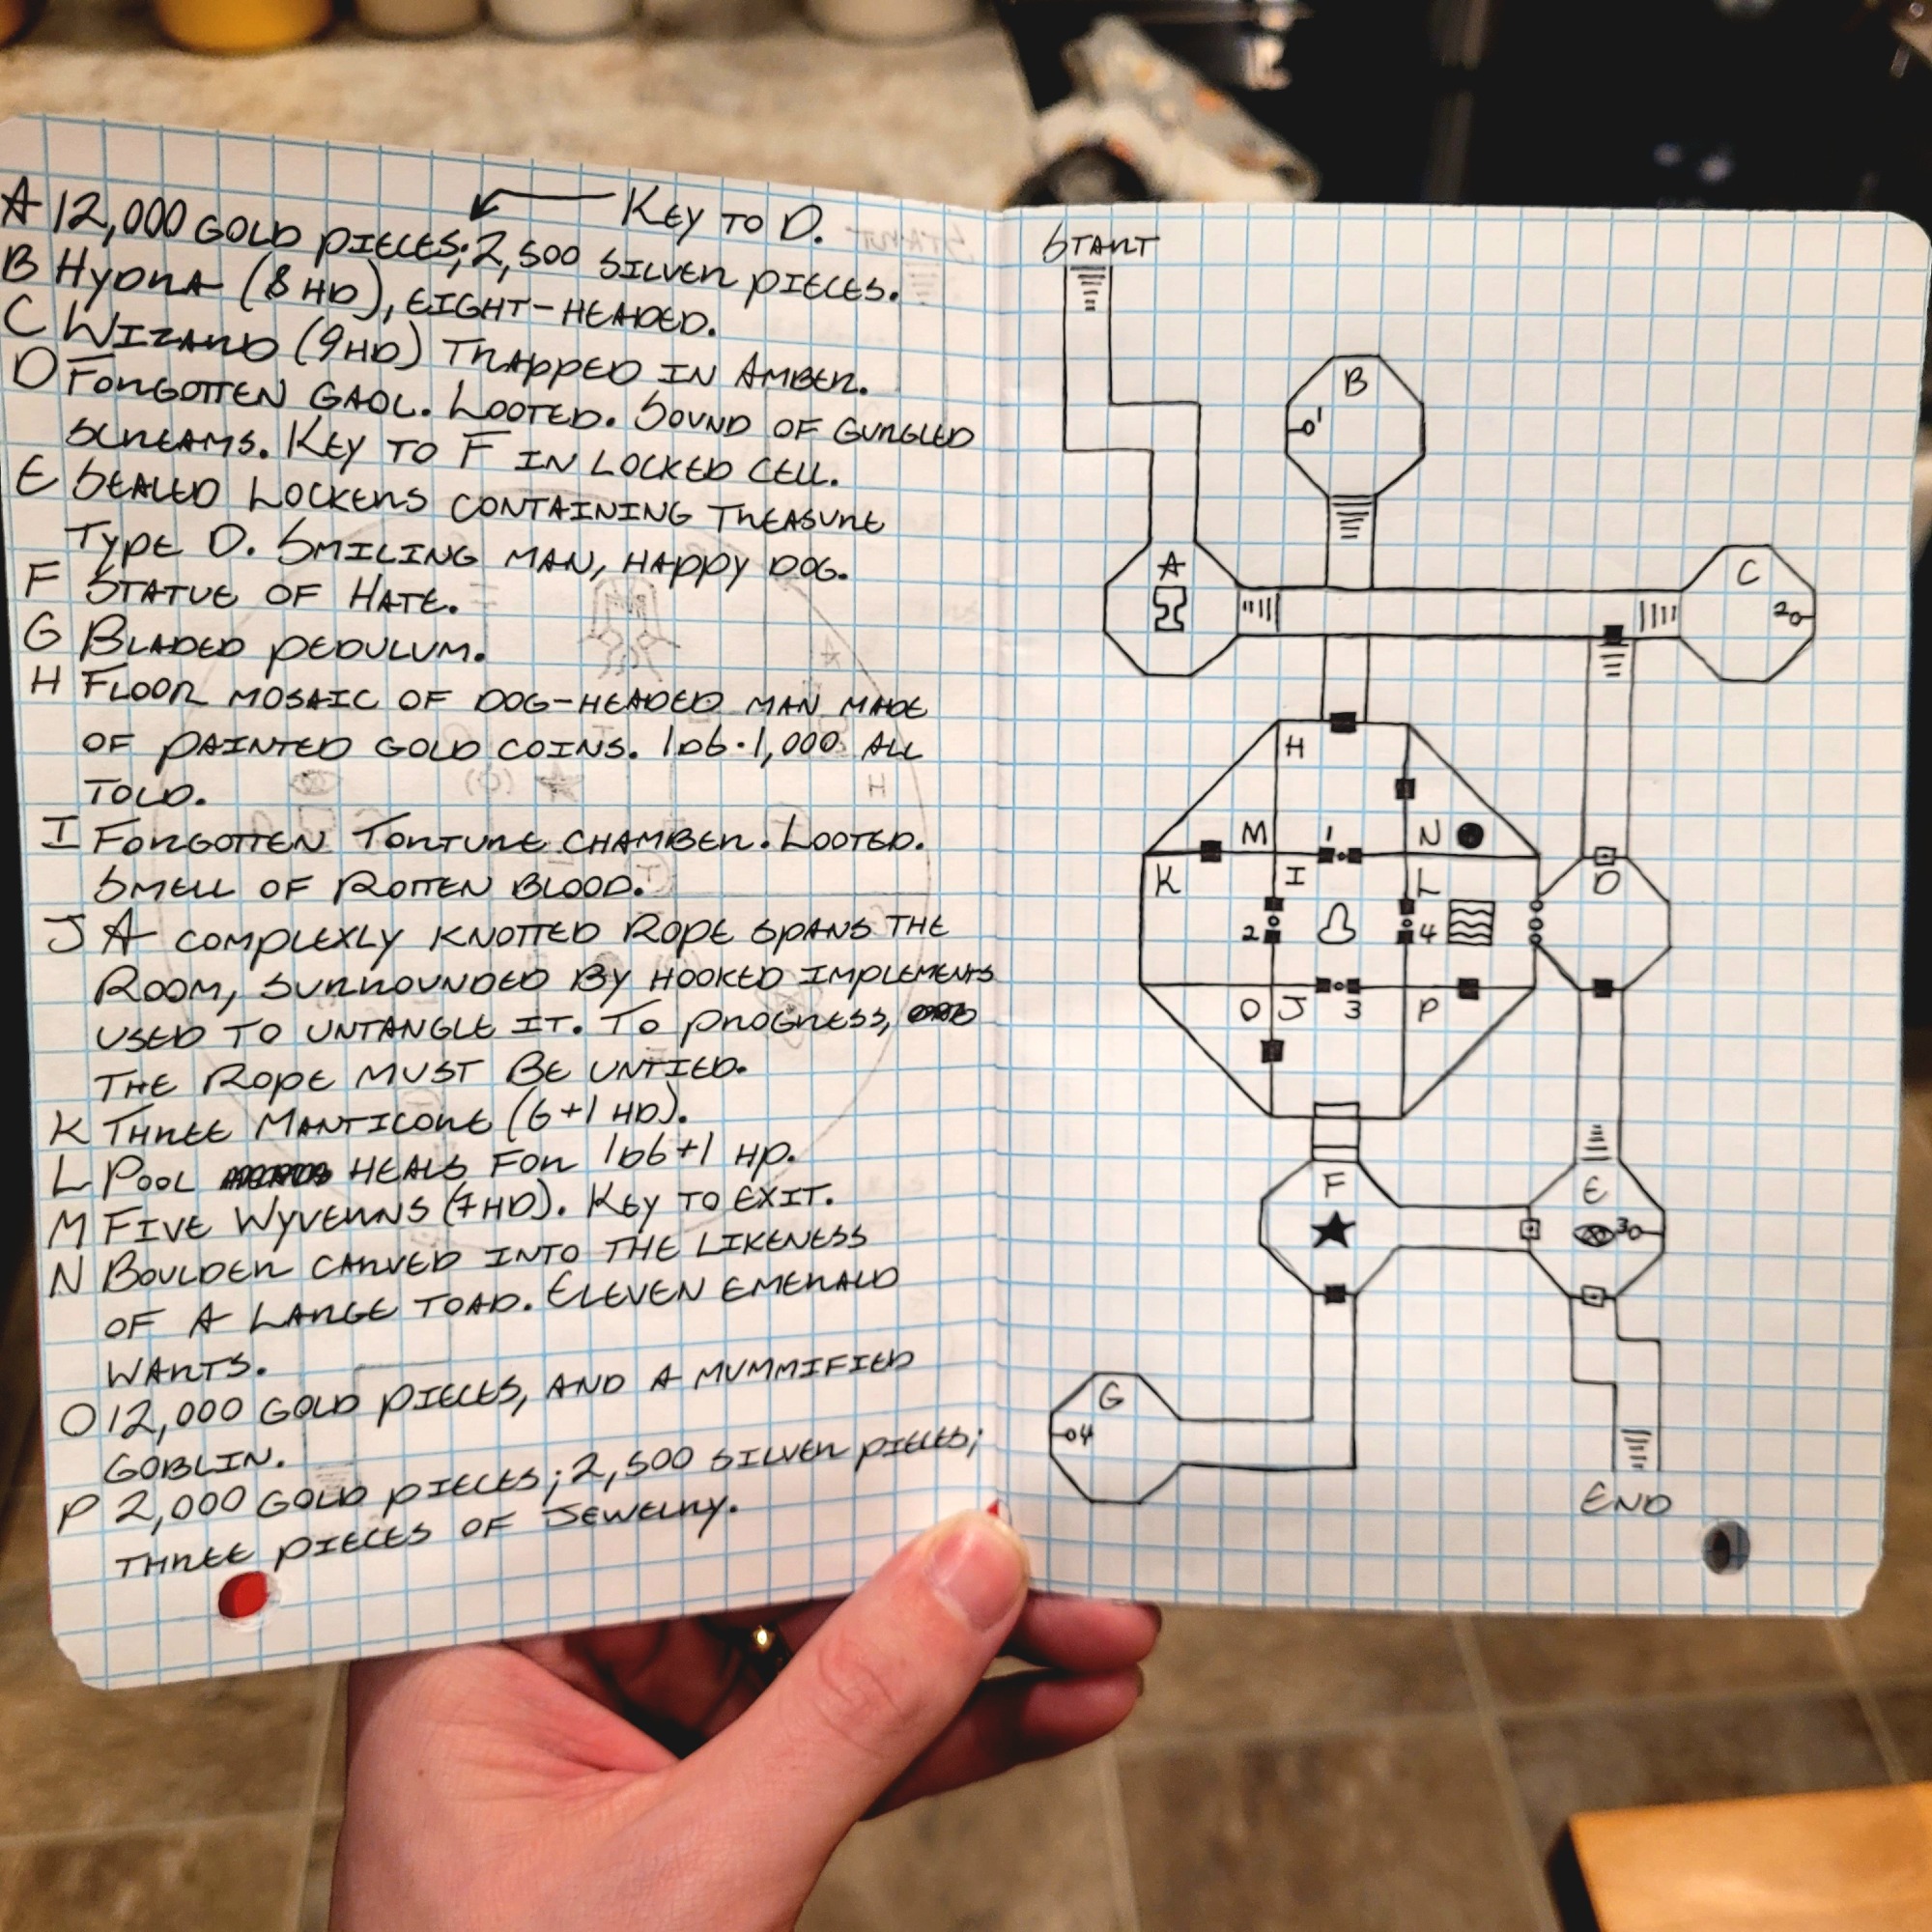 KEY TO D.
A 12,000 GOLD PIECES; 2,500 SILVER PIECES.
B HYDRA (8 HD), EIGHT-HEADED.
C WIZARD (9HD) TRAPPED IN AMBER.
D FORGOTTEN GAOL. LOOTED. SOUND OF GURGLED
SCREAMS. KEY TO F IN LOCKED CELL.
E SEALED LOCKERS CONTAINING TREASURE
TYPE D. SMILING MAN, HAPPY DOG.
F STATUE OF HATE.
G BLADED PEDULUM.
H FLOOR MOSAIC OF DOG-HEADED MAN MADE
OF PAINTED GOLD COINS. 1D6·1,000 ALL
TOLD.
I FORGOTTEN TORTURE CHAMBER. LOOTED.
SMELL OF ROTTEN BLOOD.
J A COMPLEXLY KNOTTED ROPE SPANS THE
ROOM, SURROUNDED BY HOOKED IMPLEMENTS
USED TO UNTANGLE IT. TO PROGRESS,
THE ROPE MUST BE UNTIED.
K THREE MANTICORE (6+1 HD).
L POOL HEALS FOR 1D6+1 HP.
M FIVE WYVERNS (7HD). KEY TO EXIT.
N BOULDER CARVED INTO THE LIKENESS
OF A LARGE TOAD. ELEVEN EMERALD
WARTS.
O 12,000 GOLD PIECES, AND A MUMMIFIED
GOBLIN.
P 2,000 GOLD PIECES; 2,500 SILVER PIECES;
THREE PIECES OF JEWELRY.
START
B
1
A
C
2
H
M
1
N
K
I
L
D
2
4
O
J
3
P
F
E
3
G
4
END